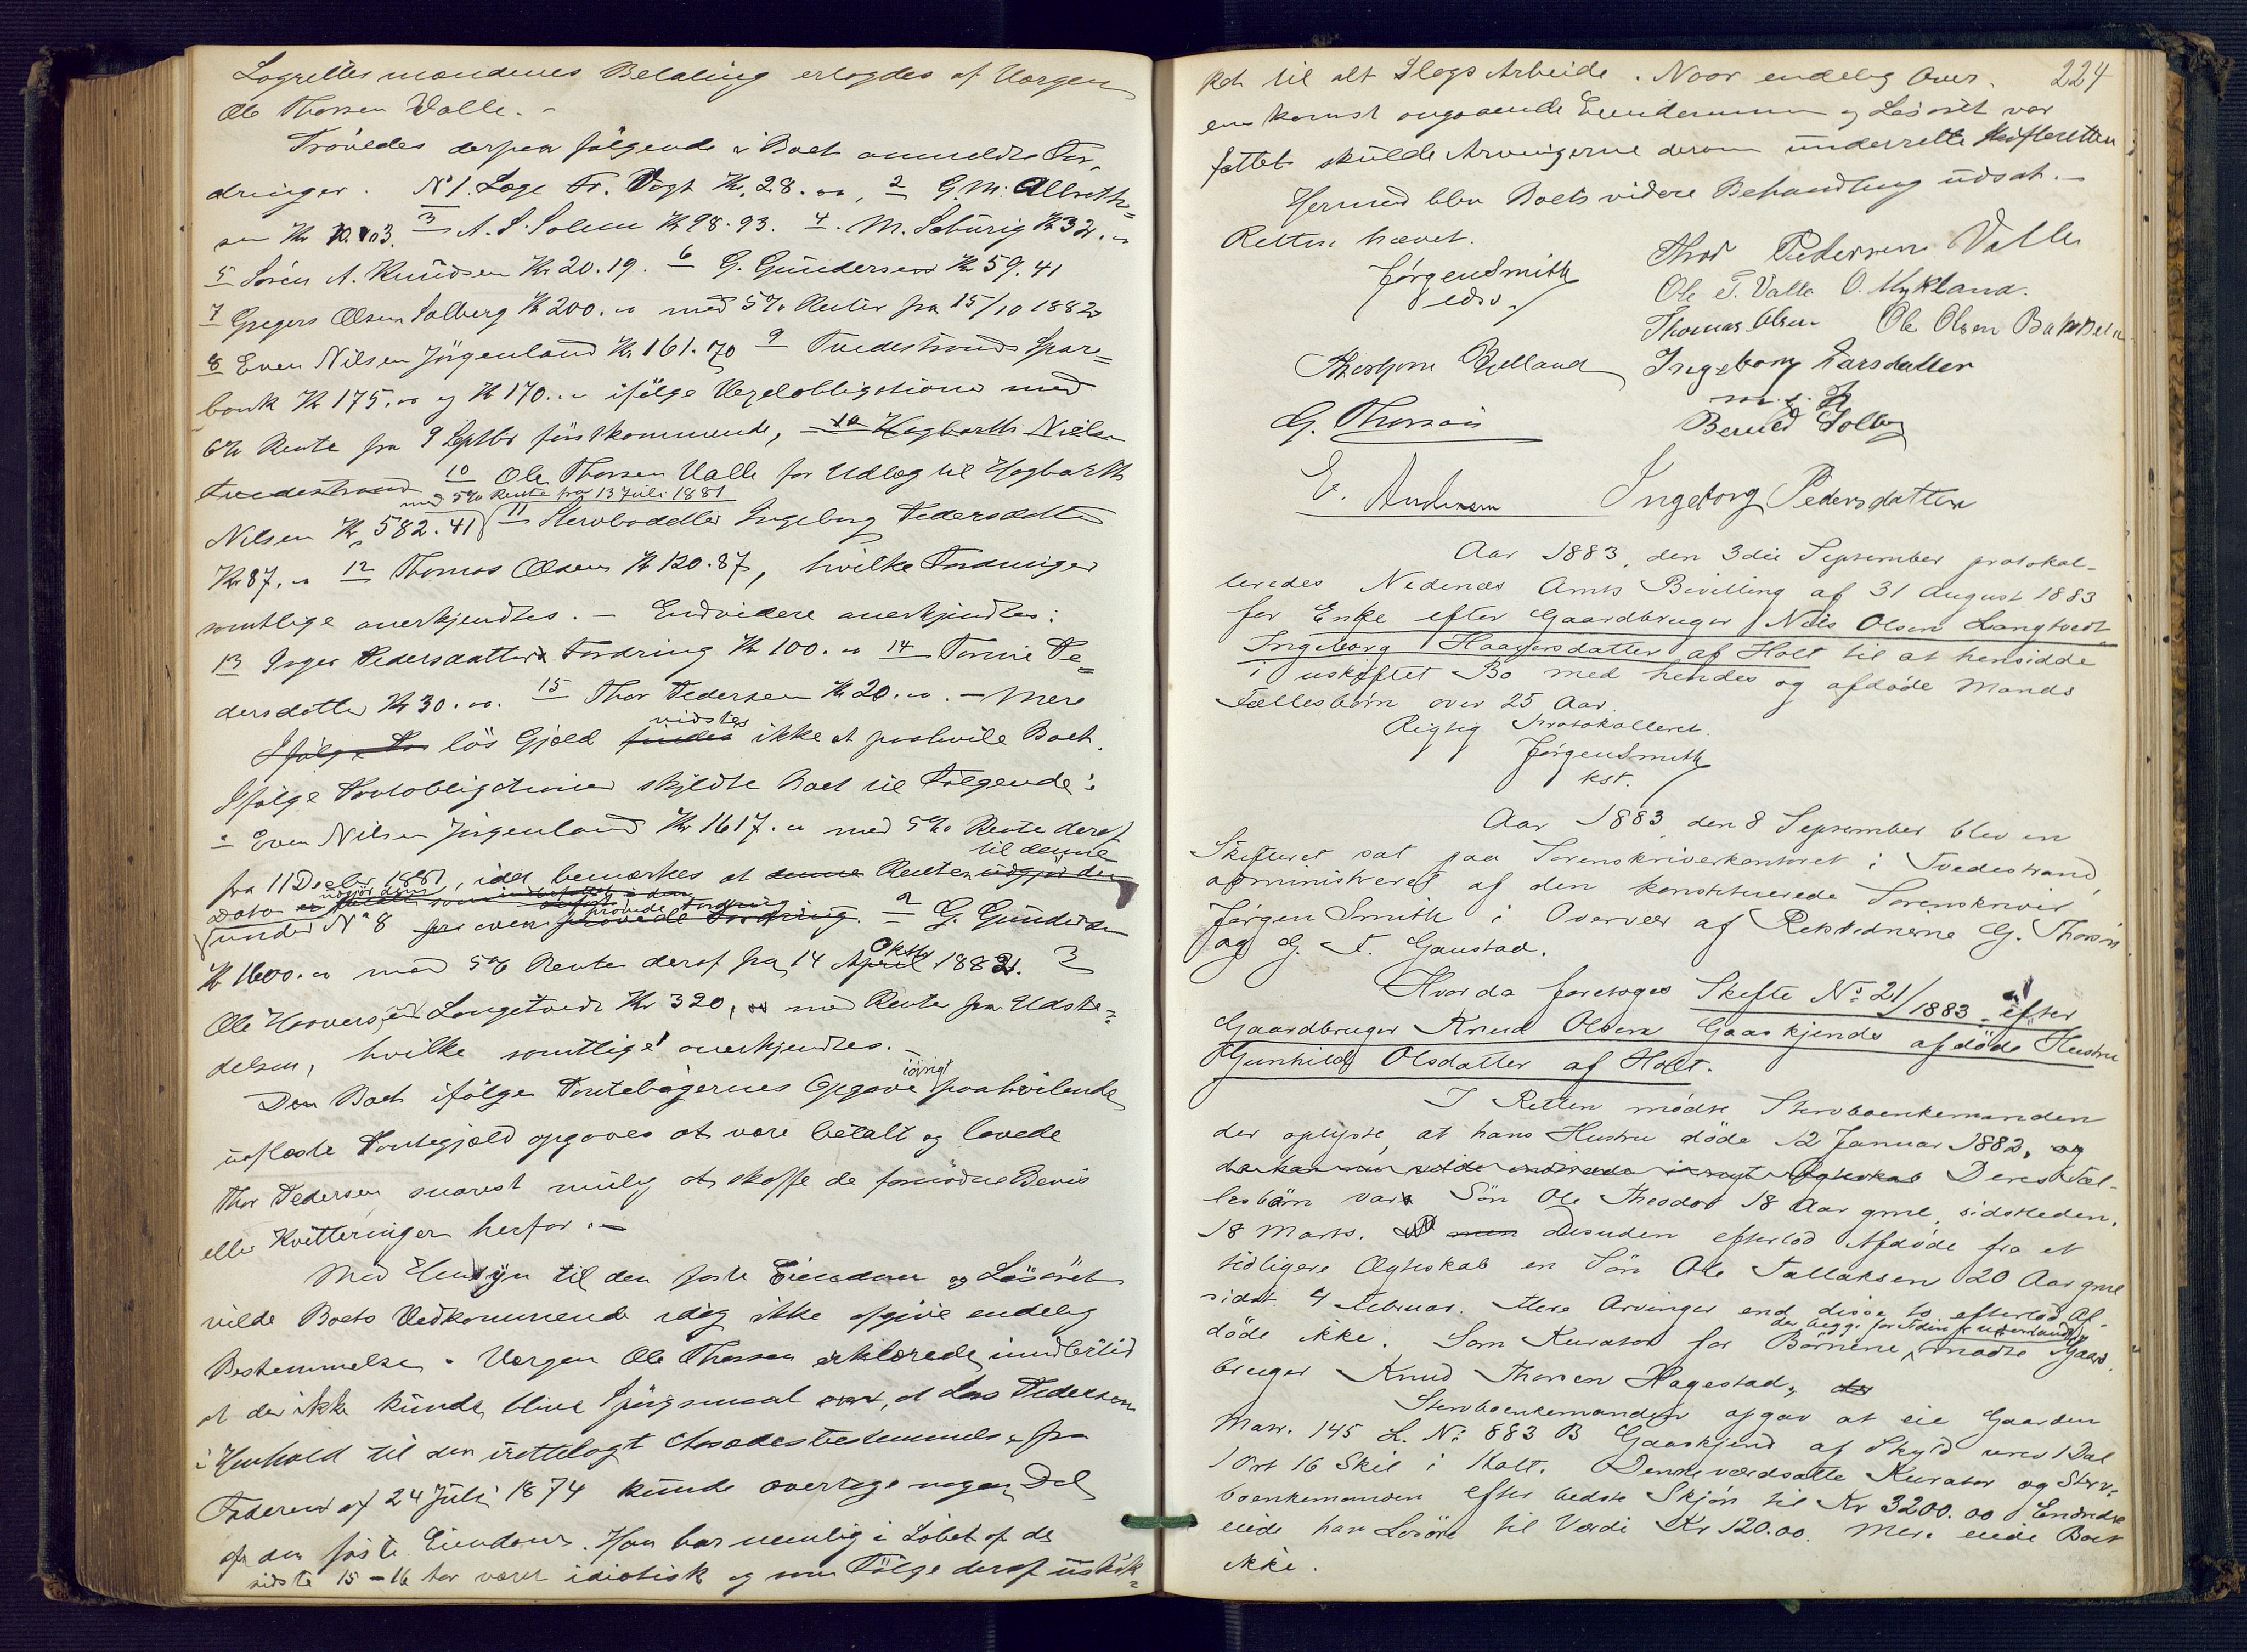 Lagrettesmændenes Betaling erlagdes af Værgen
Ole Thorsen Valle. –
Prövedes derpaa følgende i Boet anmeldte For-
dringer. No 1. Læge Fr. Vogt Kr. 28.00, 2 G. M. Albreth-
sen Kr 10.03. 3 A. S. Solem Kr 98.93. 4. M. Seburig Kr 32.00
5 Sören A. Knudsen Kr 20.19. 6 G. Gundersen Kr 59.41
7 Gregers Olsen Solberg Kr 200.00 med 5% Renter fra 15/10 1882
8 Even Nilsen Jörgenland Kr. 161.70 9 Tvedestrands Spare-
bank Kr 175.00 og Kr 170.00 ifölge Vexelobligationer med
6% Rente fra 9 Septbr förstkommende, 10 Hagbarth Nielsen
Tvedestrand 10 Ole Thorsen Valle for Udlæg til Hagbarth
med 5% Rente fra 13 Juli 1881
Nilsen Kr 582.41 11 Stervboddler Ingeborg Pedersdatter
Kr 87.00 12 Thomas Olsen Kr 120.87, hvilke Fordringer
samtlige anerkjendtes. – Endvidere anerkjendtes:
13 Inger Pedersdatters Fordring Kr 100.00 14 Tomine Pe-
dersdatter Kr 30.00. 15 Thor Pedersen Kr 20.00. – Mere
vidstes
Ifølge lös Gjæld findes ikke at paahvile Boet.
Ifølge Pantobligationer skyldte Boet til Følgende:
1 Even Nilsen Jörgenland Kr 1617.00 med 5% Rente deraf
til denne
fra 11 Decbr 1881, idet bemærkes at denne Renten udgjør den
Dato udgjør dens
under No 8 prövede Fordring. 2 G. Gundersen
Kr 1600.00 med 5% Rente deraf fra 14 Oktbr April 1882. 3
Ole Haaversen Langetvedt Kr 320, med Rente fra Udste-
delsen, hvilke samtlige anerkjendtes. –
iövrigt
Den Boet ifølge Pantebøgernes Opgave paahvilende
uaflæste Pantegjæld opgaves at være betalt og lovede
Thor Pedersen snarest mulig at skaffe de fornødne Bevis
eller Kvitteringer herfor. –
Med Hensyn til den faste Eiendom og Lösöret
vilde Boets Vedkommende idag ikke afgive endelig
Bestemmelse. Værgen Ole Thorsen erklærede imidlertid
at der ikke kunde blive Spörgsmaal om, at Lars Pedersen
i Henhold til den irettelagt Aasædesbestemmelse fra
Faderen af 24 Juli 1874 kunde overtage nogen Del
af den faste Eiendom. Han har nemlig i Løbet af de
sidste 15–16 Aar været idiotisk og som Fölge deraf uskik-
224
ket til alt Slags Arbeide. Naar endelig Over-
enskomst angaaende Eiendommen og Lösöret var
fattet skulde Arvingerne derom underrette Skifteretten
Hermed blev Boets videre Behandling udsat. –
Retten hævet.
Thor Pedersen Valle
Jørgen Smith
edsv.
Ole T. Valle O. Mykland.
Thomas Olsen Ole Olsen
Thorbjørn Gjelland Ingeborg Larsdatter
m. p.
G. Thorson Bernt Solberg
E. Andersen Ingeborg Pedersdatter
Aar 1883, den 3die September protokol-
leredes Nedenæs Amts Bevilling af 31 August 1883
for Enke efter Gaardbruger Niels Olsen Langtvedt
Ingeborg Haaversdatter af Holt til at hensidde
i uskiftet Bo med hendes og afdöde Mands
Fællesbörn over 25 Aar.
Rigtig Protokolleret.
Jørgen Smith
kst.
Aar 1883, den 8 September blev en
Skifteret sat paa Sorenskriverkontoret i Tvedestrand,
administreret af den konstituerede Sorenskriver
Jørgen Smith i Overvær af Retsvidnerne G. Thorson
og G. F. Gaustad.
Hvor da foretoges Skifte No 21/1883 efter
Gaardbruger Knud Olsen Gaaskjends afdöde Hustru
Gunhild Olsdatter af Holt.
I Retten mødte Stervboenkemanden
der oplyste, at hans Hustru döde 12 Januar 1882, og
Deres Fæl-
lesbarn var Sön Ole Theodor 18 Aar gml. sidstleden
18 Marts. men Desuden efterlod Afdöde fra et
tidligere Ægteskab en Sön Ole Tallaksen 20 Aar gml
sidst. 4 Februar. Flere Arvinger end disse to efterlod Af-
der begge for Tiden er udenlands
döde ikke. Som Kurator for Börnene, mødte Gaard-
bruger Knud Thorsen Hagestad,
Stervboenkemanden opgav at eie Gaarden
Matr. 145 L. No 883 B Gaaskjend af Skyld urev 1 Dal
1 Ort 16 Skil i Holt. Denne værdsatte Kurator og Sterv-
boenkemanden efter bedste Skjön til Kr 3200.00. Endvidere
eiede han Lösöre til Værdi Kr 120.00. Mere eiede Boet
ikke.